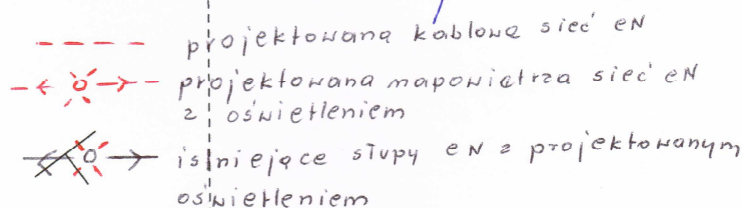 projektowana kablowa sieć eN
projektowana napowietrza sieć eN
z oświetleniem
istniejące słupy eN z projektowanym
oświetleniem